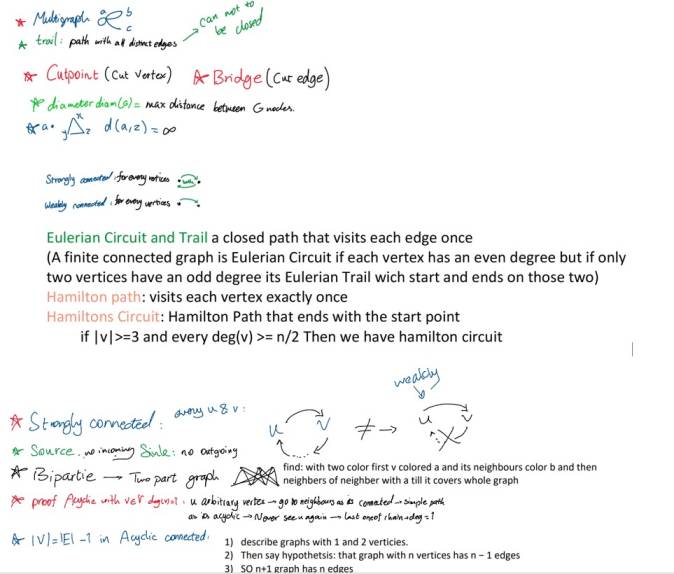 * Multigraph a b c
can not to be closed
* trail: path with all distinct edges
* Cutpoint (Cut Vertex) * Bridge (Cut edge)
* diameter diam(G) = max distance between G nodes.
* a. y x z d(a,z) = ∞
Strongly connected: for every vertices
Weakly connected: for every vertices
Eulerian Circuit and Trail a closed path that visits each edge once
(A finite connected graph is Eulerian Circuit if each vertex has an even degree but if only
two vertices have an odd degree its Eulerian Trail wich start and ends on those two)
Hamilton path: visits each vertex exactly once
Hamiltons Circuit: Hamilton Path that ends with the start point
if |v|>=3 and every deg(v) >= n/2 Then we have hamilton circuit
weakly
* Strongly connected: every u & v: u v ≠ → u v
* Source: no incoming Sink: no outgoing
* Bipartie → Two part graph
find: with two color first v colored a and its neighbours color b and then
neighbors of neighber with a till it covers whole graph
* proof Acyclic with v∈V deg(v)=1: u arbitrary vertex → go to neighbours as is connected → simple path
as is acyclic → Never see u again → last one of chain → deg = 1
* |V|=|E|-1 in Acyclic connected:
1) describe graphs with 1 and 2 verticies.
2) Then say hypothetsis: that graph with n vertices has n – 1 edges
3) SO n+1 graph has n edges